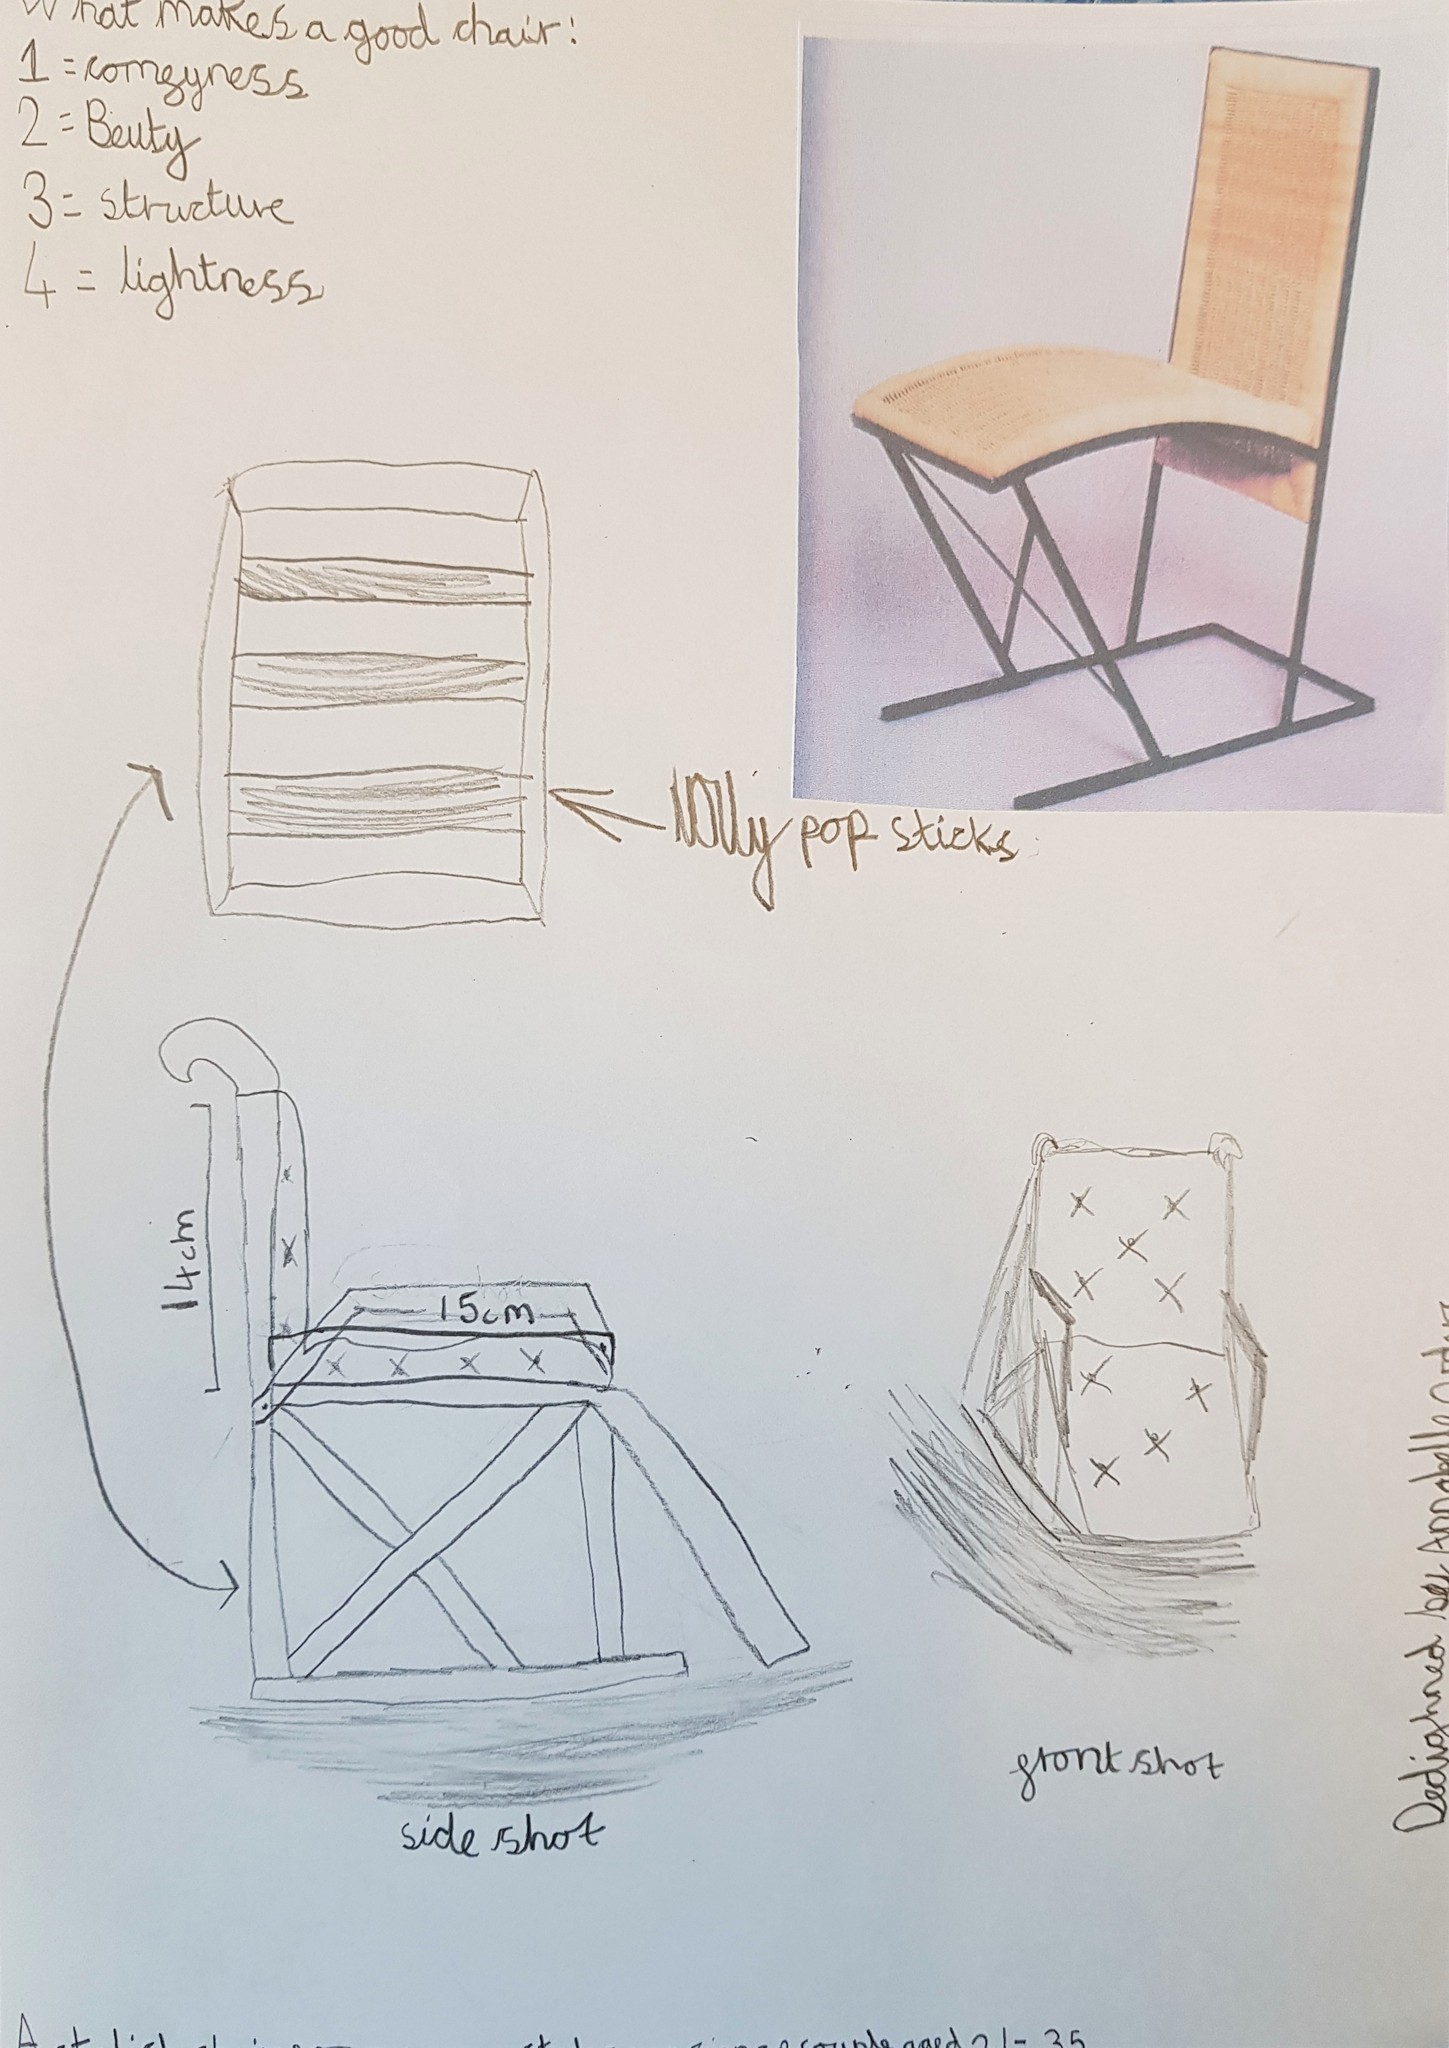 What makes a good chair:
1 = comfyness
2 = Beuty
3 = structure
4 = lightness
lolly pop sticks
14cm
15cm
side shot
front shot
Dedighned by Annabelle
couple aged 21-35